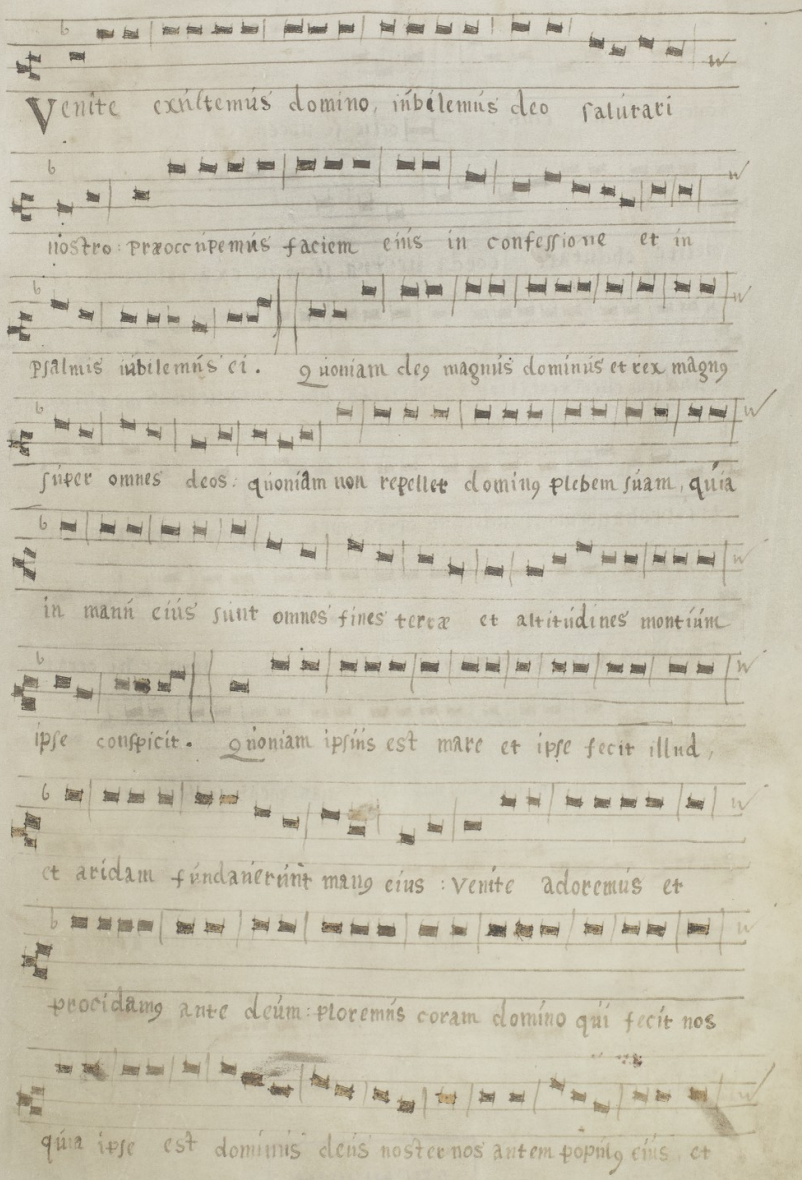 Venite exultemus domino, iubilemus deo salutari
nostro: præoccupemus faciem eius in confessione et in
psalmis iubilemus ei. Quoniam deꝰ magnus dominus et rex magnꝰ
super omnes deos: quoniam non repellet dominꝰ plebem suam, quia
in manu eius sunt omnes fines terræ et altitudines montium
ipse conspicit. Quoniam ipsius est mare et ipse fecit illud,
et aridam fundauerunt manꝰ eius: Venite adoremus et
procidamꝰ ante deum: ploremus coram domino qui fecit nos
quia ipse est dominus deus noster nos autem populꝰ eius, et